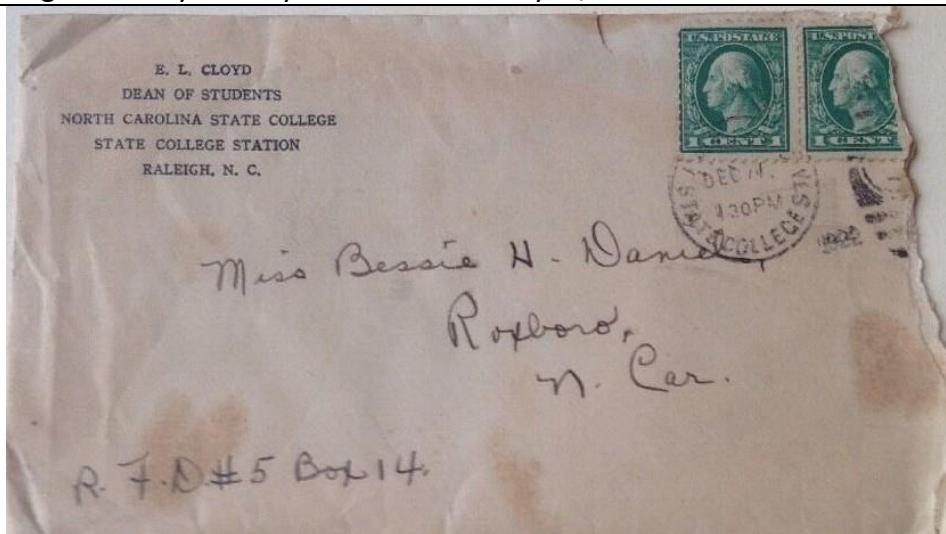 E. L. CLOYD
DEAN OF STUDENTS
NORTH CAROLINA STATE COLLEGE
STATE COLLEGE STATION
RALEIGH, N. C.
U.S.POSTAGE
1 CENT 1
U.S.POST
1 CENT
DEC
30 PM
STATE COLLEGE
Miss Bessie H. Daniel,
Roxboro,
N. Car.
R. F. D #5 Box 14.